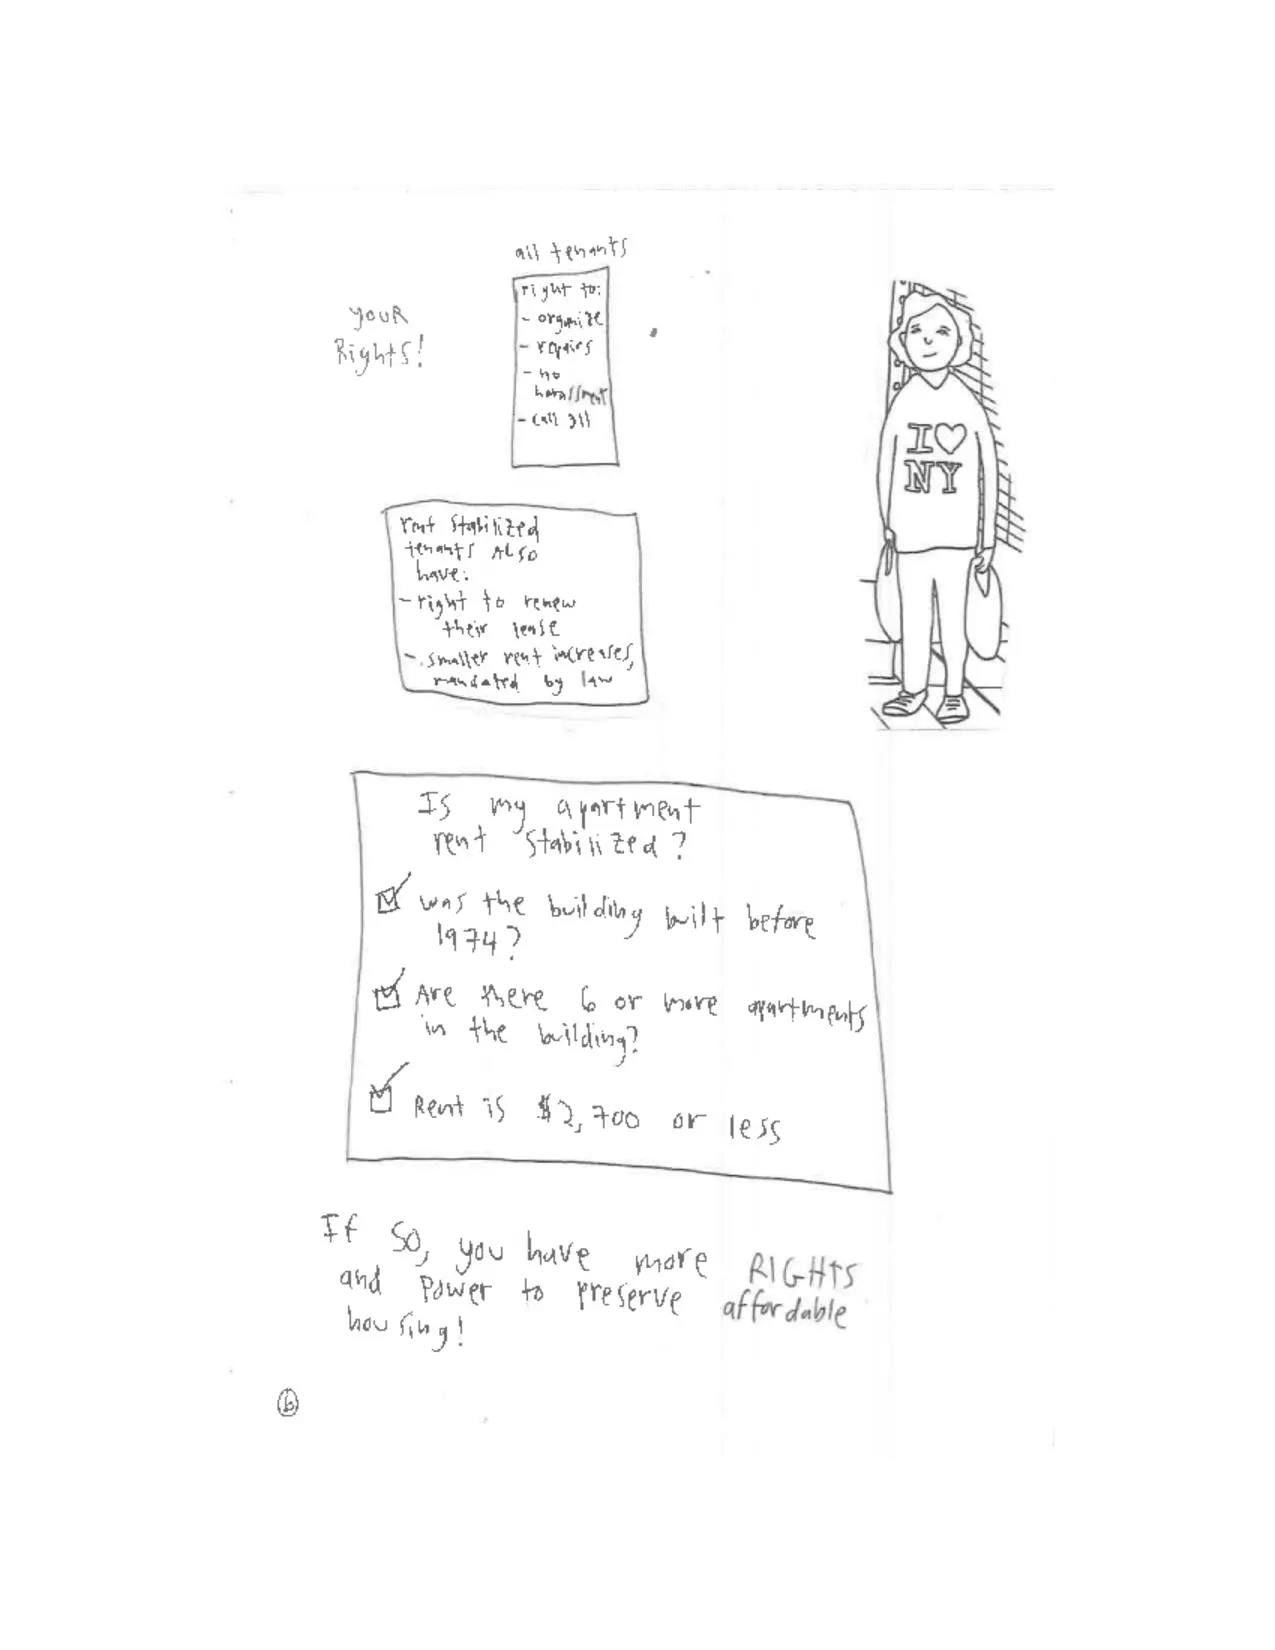 all tenants
right to:
- organize
- repairs
- no
harassment
- call 311
YOUR
Rights!
I ♡
NY
rent stabilized
tenants ALSO
have:
- right to renew
their lease
- smaller rent increases,
mandated by law
Is my apartment
rent stabilized?
was the building built before
1974?
Are there 6 or more apartments
in the building?
Rent is $2,700 or less
If so, you have more RIGHTS
and power to preserve affordable
housing!
6